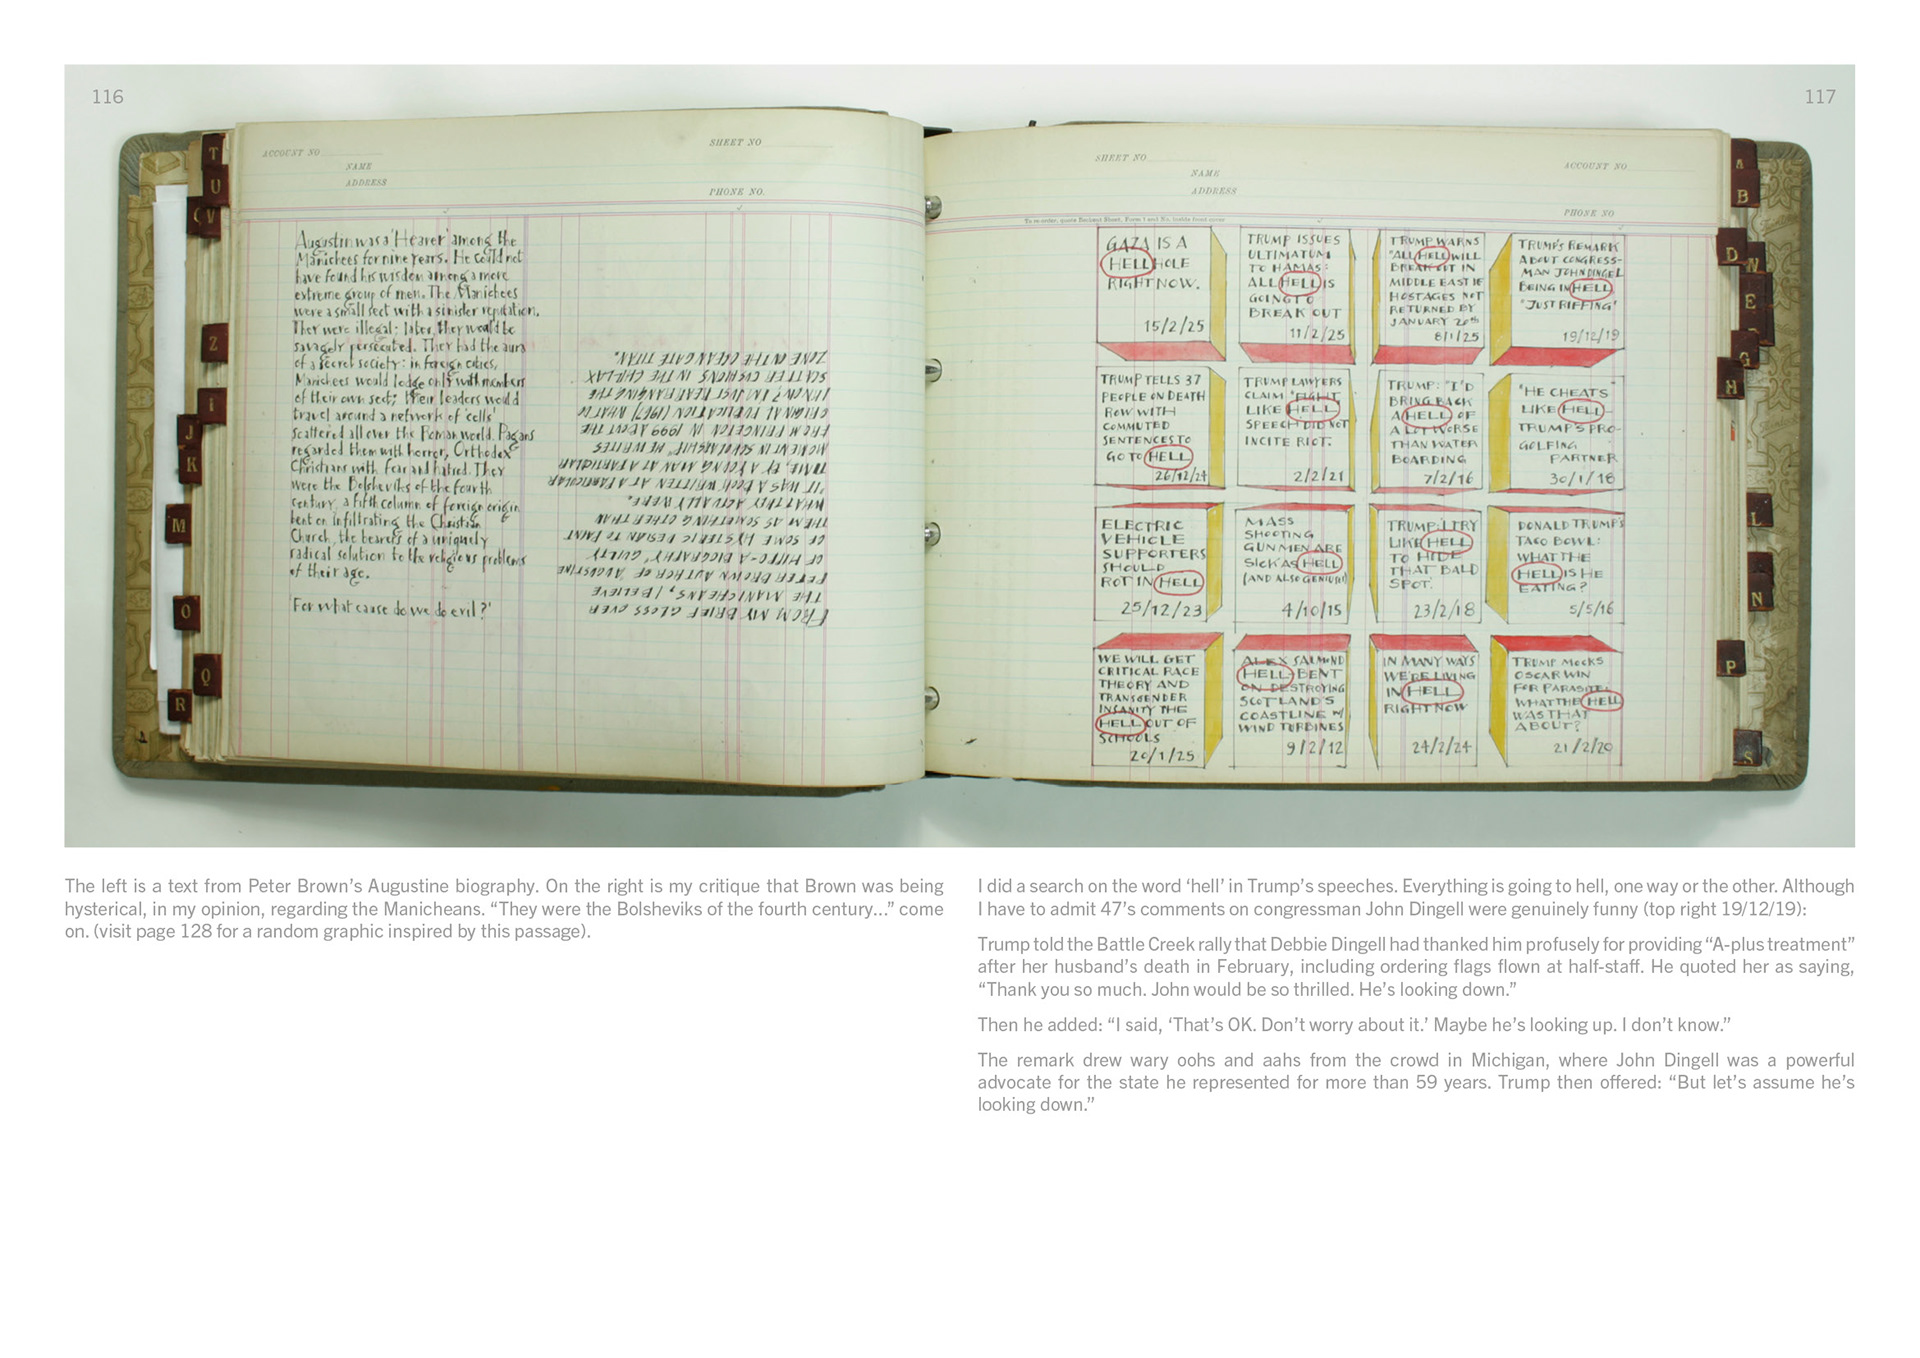 116
117
ACCOUNT NO
SHEET NO
NAME
ADDRESS
PHONE NO.
Augustin was a 'Hearer' among the
Manichees for nine years. He could not
have found his wisdom among a more
extreme group of men. The Manichees
were a small sect with a sinister reputation.
They were illegal; later, they would be
savagely persecuted. They had the aura
of a secret society: in foreign cities,
Manichees would lodge only with members
of their own sect; their leaders would
travel around a network of 'cells'
scattered all over the Roman world. Pagans
regarded them with horror, Orthodox
Christians with fear and hatred. They
were the Bolsheviks of the fourth
century, a fifth column of foreign origin
bent on infiltrating the Christian
Church, the bearers of a uniquely
radical solution to the religious problems
of their age.
'For what cause do we do evil?'
FROM MY BRIEF GLOSS OVER
THE MANICHEANS, I BELIEVE
PETER BROWN AUTHOR OF 'AUGUSTINE
OF HIPPO - A BIOGRAPHY', GUILTY
OF SOME HYSTERIC DESIGN TO PAINT
THEM AS SOMETHING OTHER THAN
WHAT THEY ACTUALLY WERE.
"IT WAS A BOOK WRITTEN AT A PARTICULAR
TIME, BY A YOUNG MAN AT A PARTICULAR
MOMENT IN SCHOLARSHIP" HE WRITES
FROM PRINCETON IN 1999 ABOUT THE
ORIGINAL PUBLICATION (1967) WHAT DO
I KNOW? I'M JUST REARRANGING THE
SCATTER CUSHIONS IN THE CHILLAX
ZONE IN THE OCEANGATE TITAN.
T
U
V
Z
I
J
K
M
O
Q
R
SHEET NO
ACCOUNT NO
NAME
ADDRESS
PHONE NO
GAZA IS A
HELLHOLE
RIGHT NOW.
15/2/25
TRUMP ISSUES
ULTIMATUM
TO HAMAS:
ALL HELL IS
GOING TO
BREAK OUT
11/2/25
TRUMP WARNS
"ALL HELL WILL
BREAK OUT IN
MIDDLE EAST IF
HOSTAGES NOT
RETURNED BY
JANUARY 20th
8/1/25
TRUMP'S REMARK
ABOUT CONGRESS-
MAN JOHN DINGEL
BEING IN HELL
"JUST RIFFING"
19/12/19
TRUMP TELLS 37
PEOPLE ON DEATH
ROW WITH
COMMUTED
SENTENCES TO
GO TO HELL
26/12/24
TRUMP LAWYERS
CLAIM "FIGHT
LIKE HELL"
SPEECH DID NOT
INCITE RIOT.
2/2/21
TRUMP: "I'D
BRING BACK
A HELL OF
A LOT WORSE
THAN WATER
BOARDING
7/2/16
"HE CHEATS
LIKE HELL -
TRUMP'S PRO-
GOLFING
PARTNER
30/1/18
ELECTRIC
VEHICLE
SUPPORTERS
SHOULD
ROT IN HELL
25/12/23
MASS
SHOOTING
GUNMEN ARE
SICK AS HELL
(AND ALSO GENIUS!)
4/10/15
TRUMP: I TRY
LIKE HELL
TO HIDE
THAT BALD
SPOT.
23/2/18
DONALD TRUMP'S
TACO BOWL:
WHAT THE
HELL IS HE
EATING?
5/5/16
WE WILL GET
CRITICAL RACE
THEORY AND
TRANSGENDER
INSANITY THE
HELL OUT OF
SCHOOLS
20/1/25
ALEX SALMOND
HELL-BENT
ON DESTROYING
SCOTLAND'S
COASTLINE W/
WIND TURBINES
9/2/12
IN MANY WAYS
WE'RE LIVING
IN HELL
RIGHT NOW
24/2/24
TRUMP MOCKS
OSCAR WIN
FOR PARASITE,
WHAT THE HELL
WAS THAT
ABOUT?
21/2/20
A
B
D
E
G
H
L
N
P
S
The left is a text from Peter Brown's Augustine biography. On the right is my critique that Brown was being
hysterical, in my opinion, regarding the Manicheans. "They were the Bolsheviks of the fourth century..." come
on. (visit page 128 for a random graphic inspired by this passage).
I did a search on the word 'hell' in Trump's speeches. Everything is going to hell, one way or the other. Although
I have to admit 47's comments on congressman John Dingell were genuinely funny (top right 19/12/19):
Trump told the Battle Creek rally that Debbie Dingell had thanked him profusely for providing "A-plus treatment"
after her husband's death in February, including ordering flags flown at half-staff. He quoted her as saying,
"Thank you so much. John would be so thrilled. He's looking down."
Then he added: "I said, 'That's OK. Don't worry about it.' Maybe he's looking up. I don't know."
The remark drew wary oohs and aahs from the crowd in Michigan, where John Dingell was a powerful
advocate for the state he represented for more than 59 years. Trump then offered: "But let's assume he's
looking down."